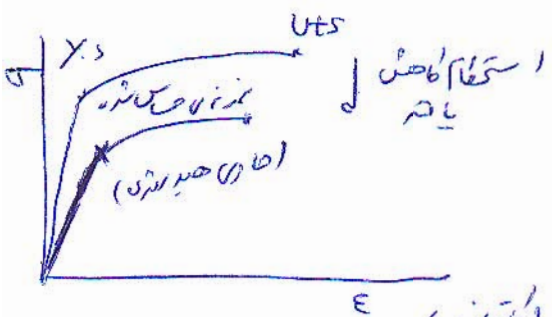 UTS
Y.S
σ
استحکام کاهش
یافته
نمونه‌ی حساس شده
(حاوی هیدروژن)
ε